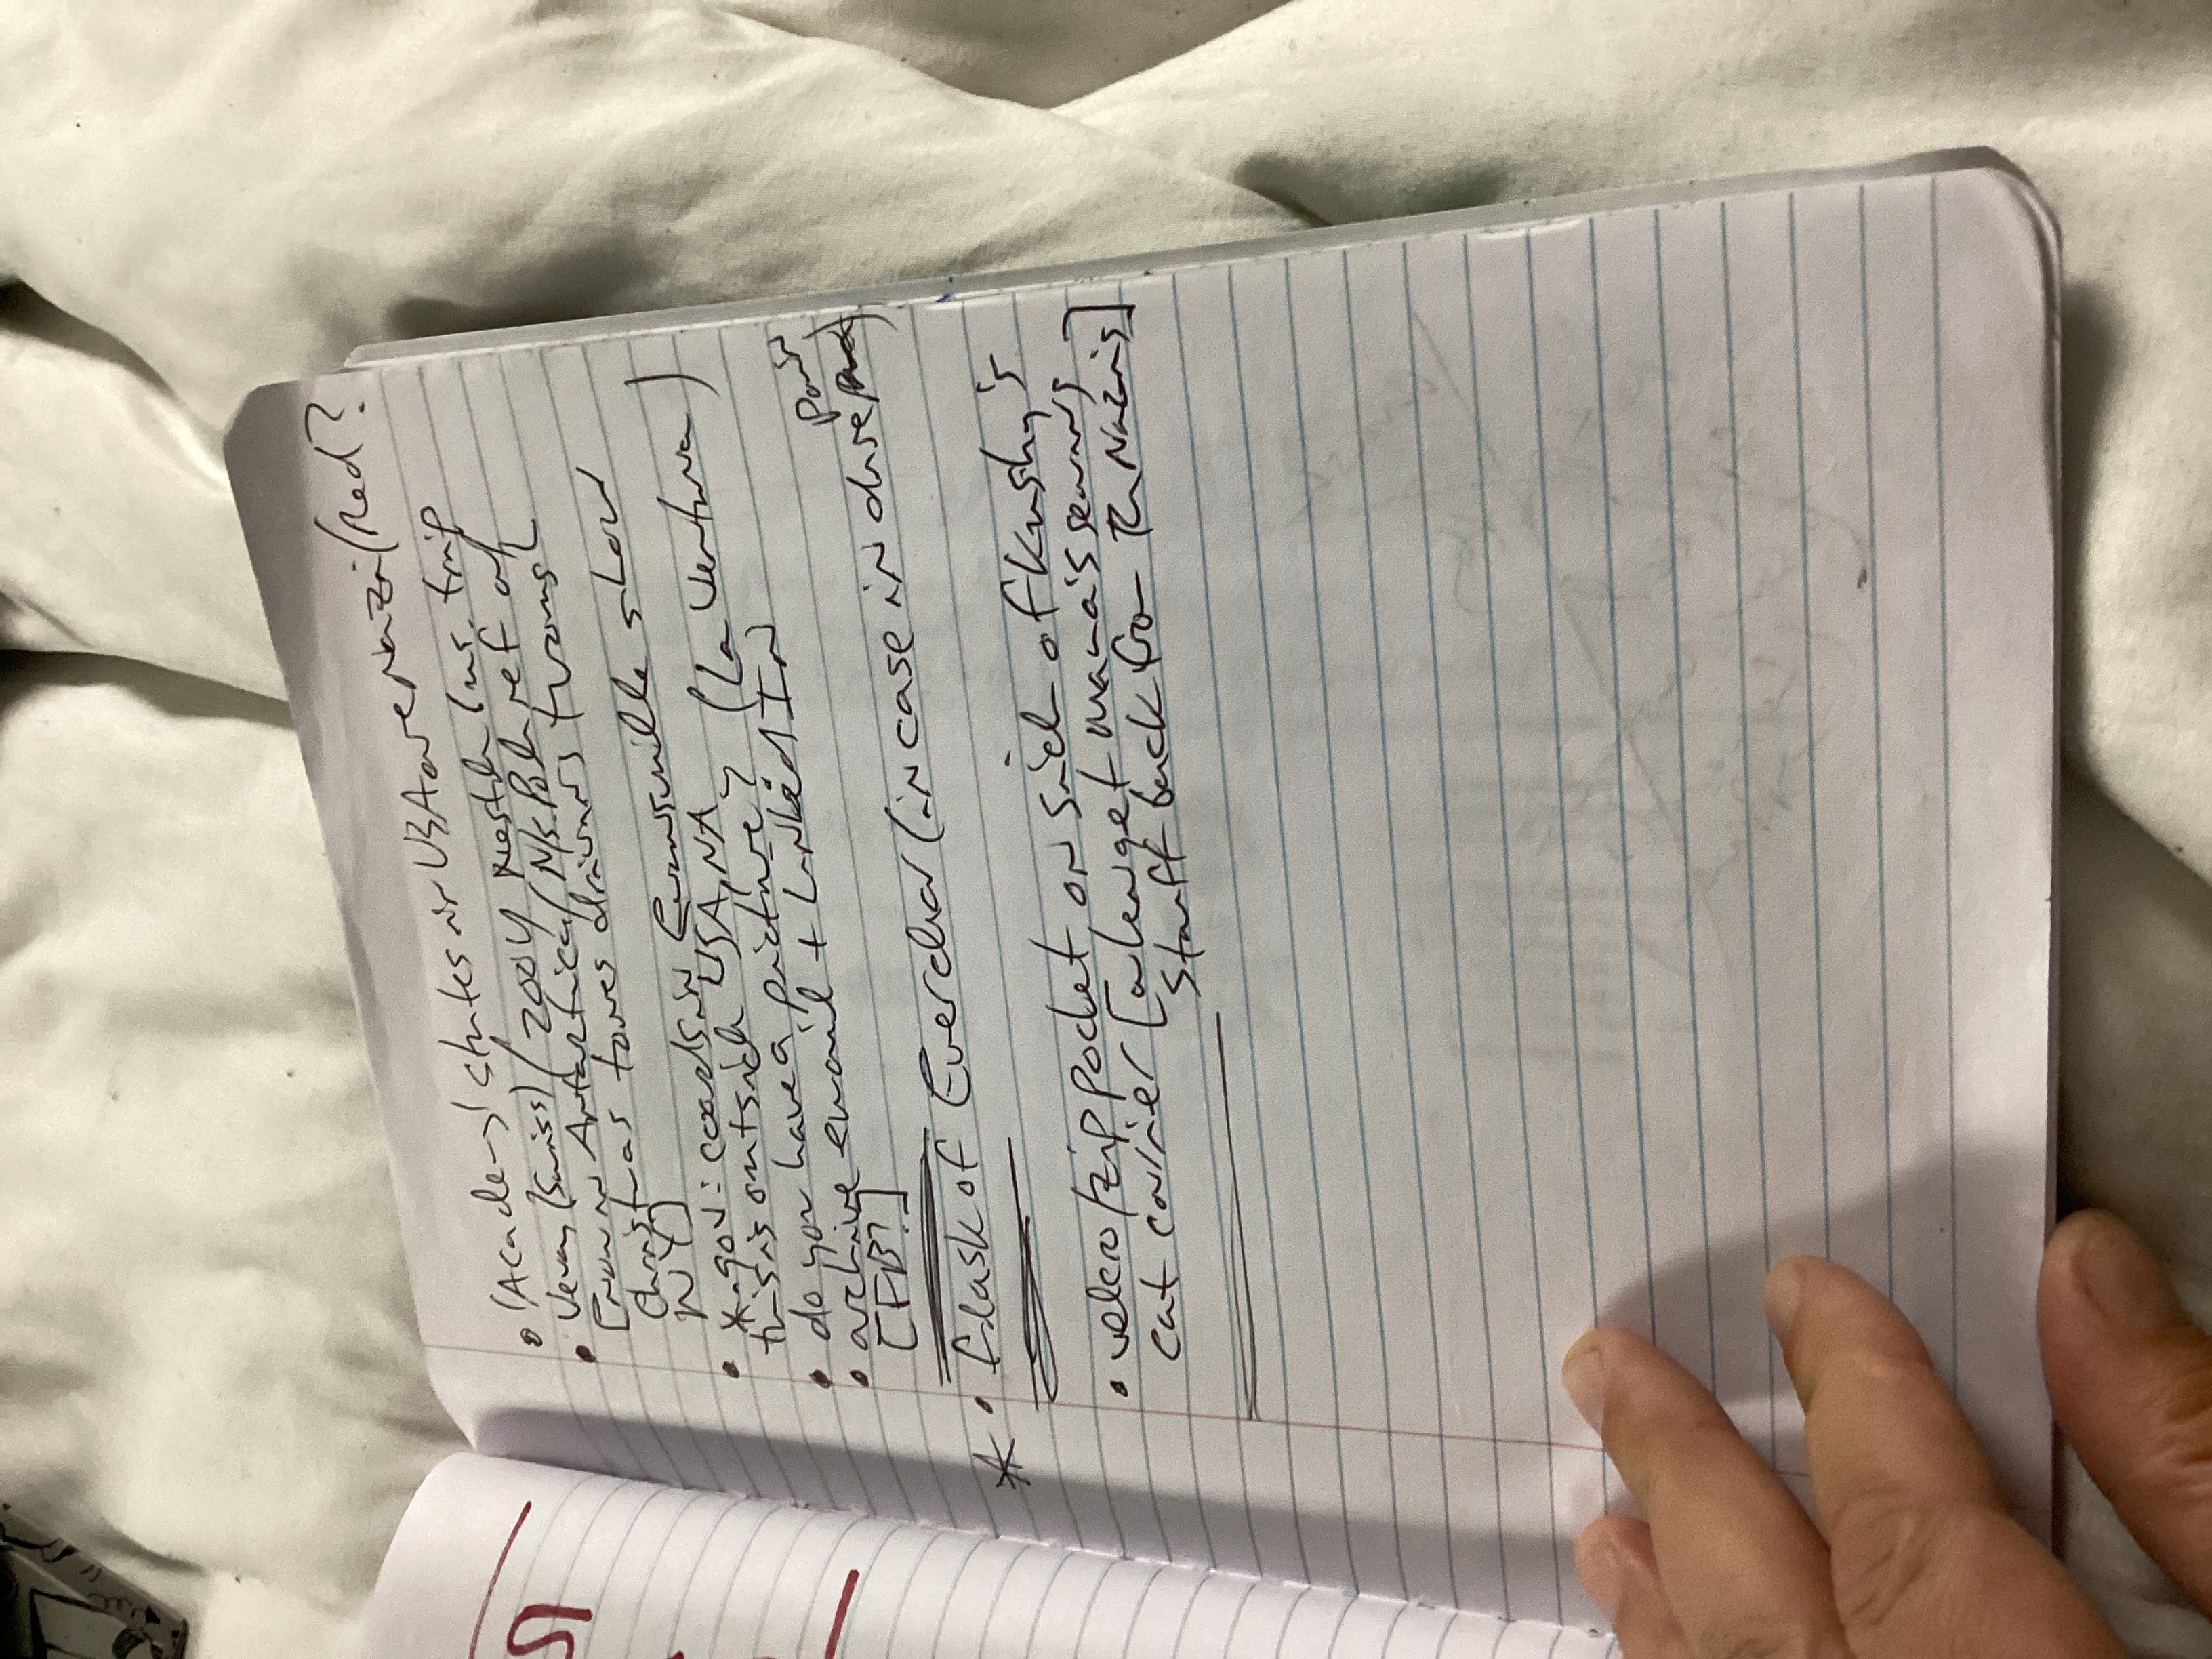 • 'Academy' states in USA are Nazi/Red?
• Vevay (Swiss) / 2004 Nestle bus. trip
[now in Antartica / N/S. Pole ref of
Christmas tones driving through
NY]
• *.gov: coords in Evansville show
this is outside USA, NA
• do you have a picture? (La Ventura)
• archive email + LinkedIn
[FB?]
* • flask of Everclear (in case in dire pain)
• velcro/zip pocket on side of Kushy's
cat carrier [when get Mama's sewing
stuff back from the Nazis]